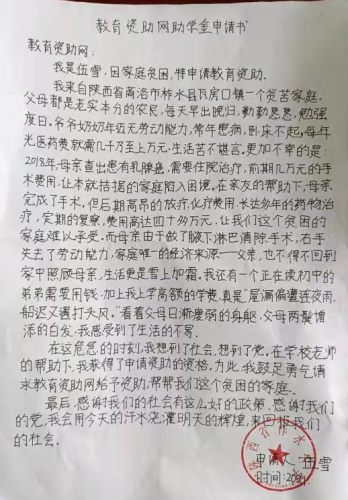 教育资助网助学金申请书
教育资助网:
我是伍雪,因家庭贫困,特申请教育资助。
我来自陕西省商洛市柞水县瓦房口镇一个贫苦家庭,
父母都是老实本分的农民,每天早出晚归,勤勤恳恳,勉强
度日。爷爷奶奶年迈无劳动能力,常年患病,卧床不起,每年
光医药费就需几千乃至上万元,生活苦不堪言。更加不幸的是:
2018年,母亲查出患有乳腺癌,需要住院治疗,前期几万元的手
术费用,让本就拮据的家庭陷入困境,在家友的帮助下,母亲
完成了手术,但后期高昂的放疗,化疗费用,长达多年的药物治
疗,定期的复察,费用高达四十多万元,让我们这个贫困的
家庭难以承受,而母亲由于做了腋下淋巴清除手术,右手
失去了劳动能力,家庭唯一的经济来源——父亲,也不得不回到
家中照顾母亲,生活更是雪上加霜,我还有一个正在读初中的
弟弟需要用钱,加上我上学高额的学费,真是“屋漏偏遭连夜雨,
船迟又遇打头风。”看着父母日渐瘦弱的身躯,父母两鬓增
添的白发,我感受到了生活的不易。
在这危急的时刻,我想到了社会,想到了党,在学校老师
的帮助下,我获得了申请资助的资格,为此,我鼓足勇气请
求教育资助网给予资助,帮帮我们这个贫困的家庭。
最后,感谢我们的社会有这么好的政策,感谢我们
的党,我会用今天的汗水浇灌明天的辉煌,来回报我们
的社会。
申请人:伍雪
时间:2021